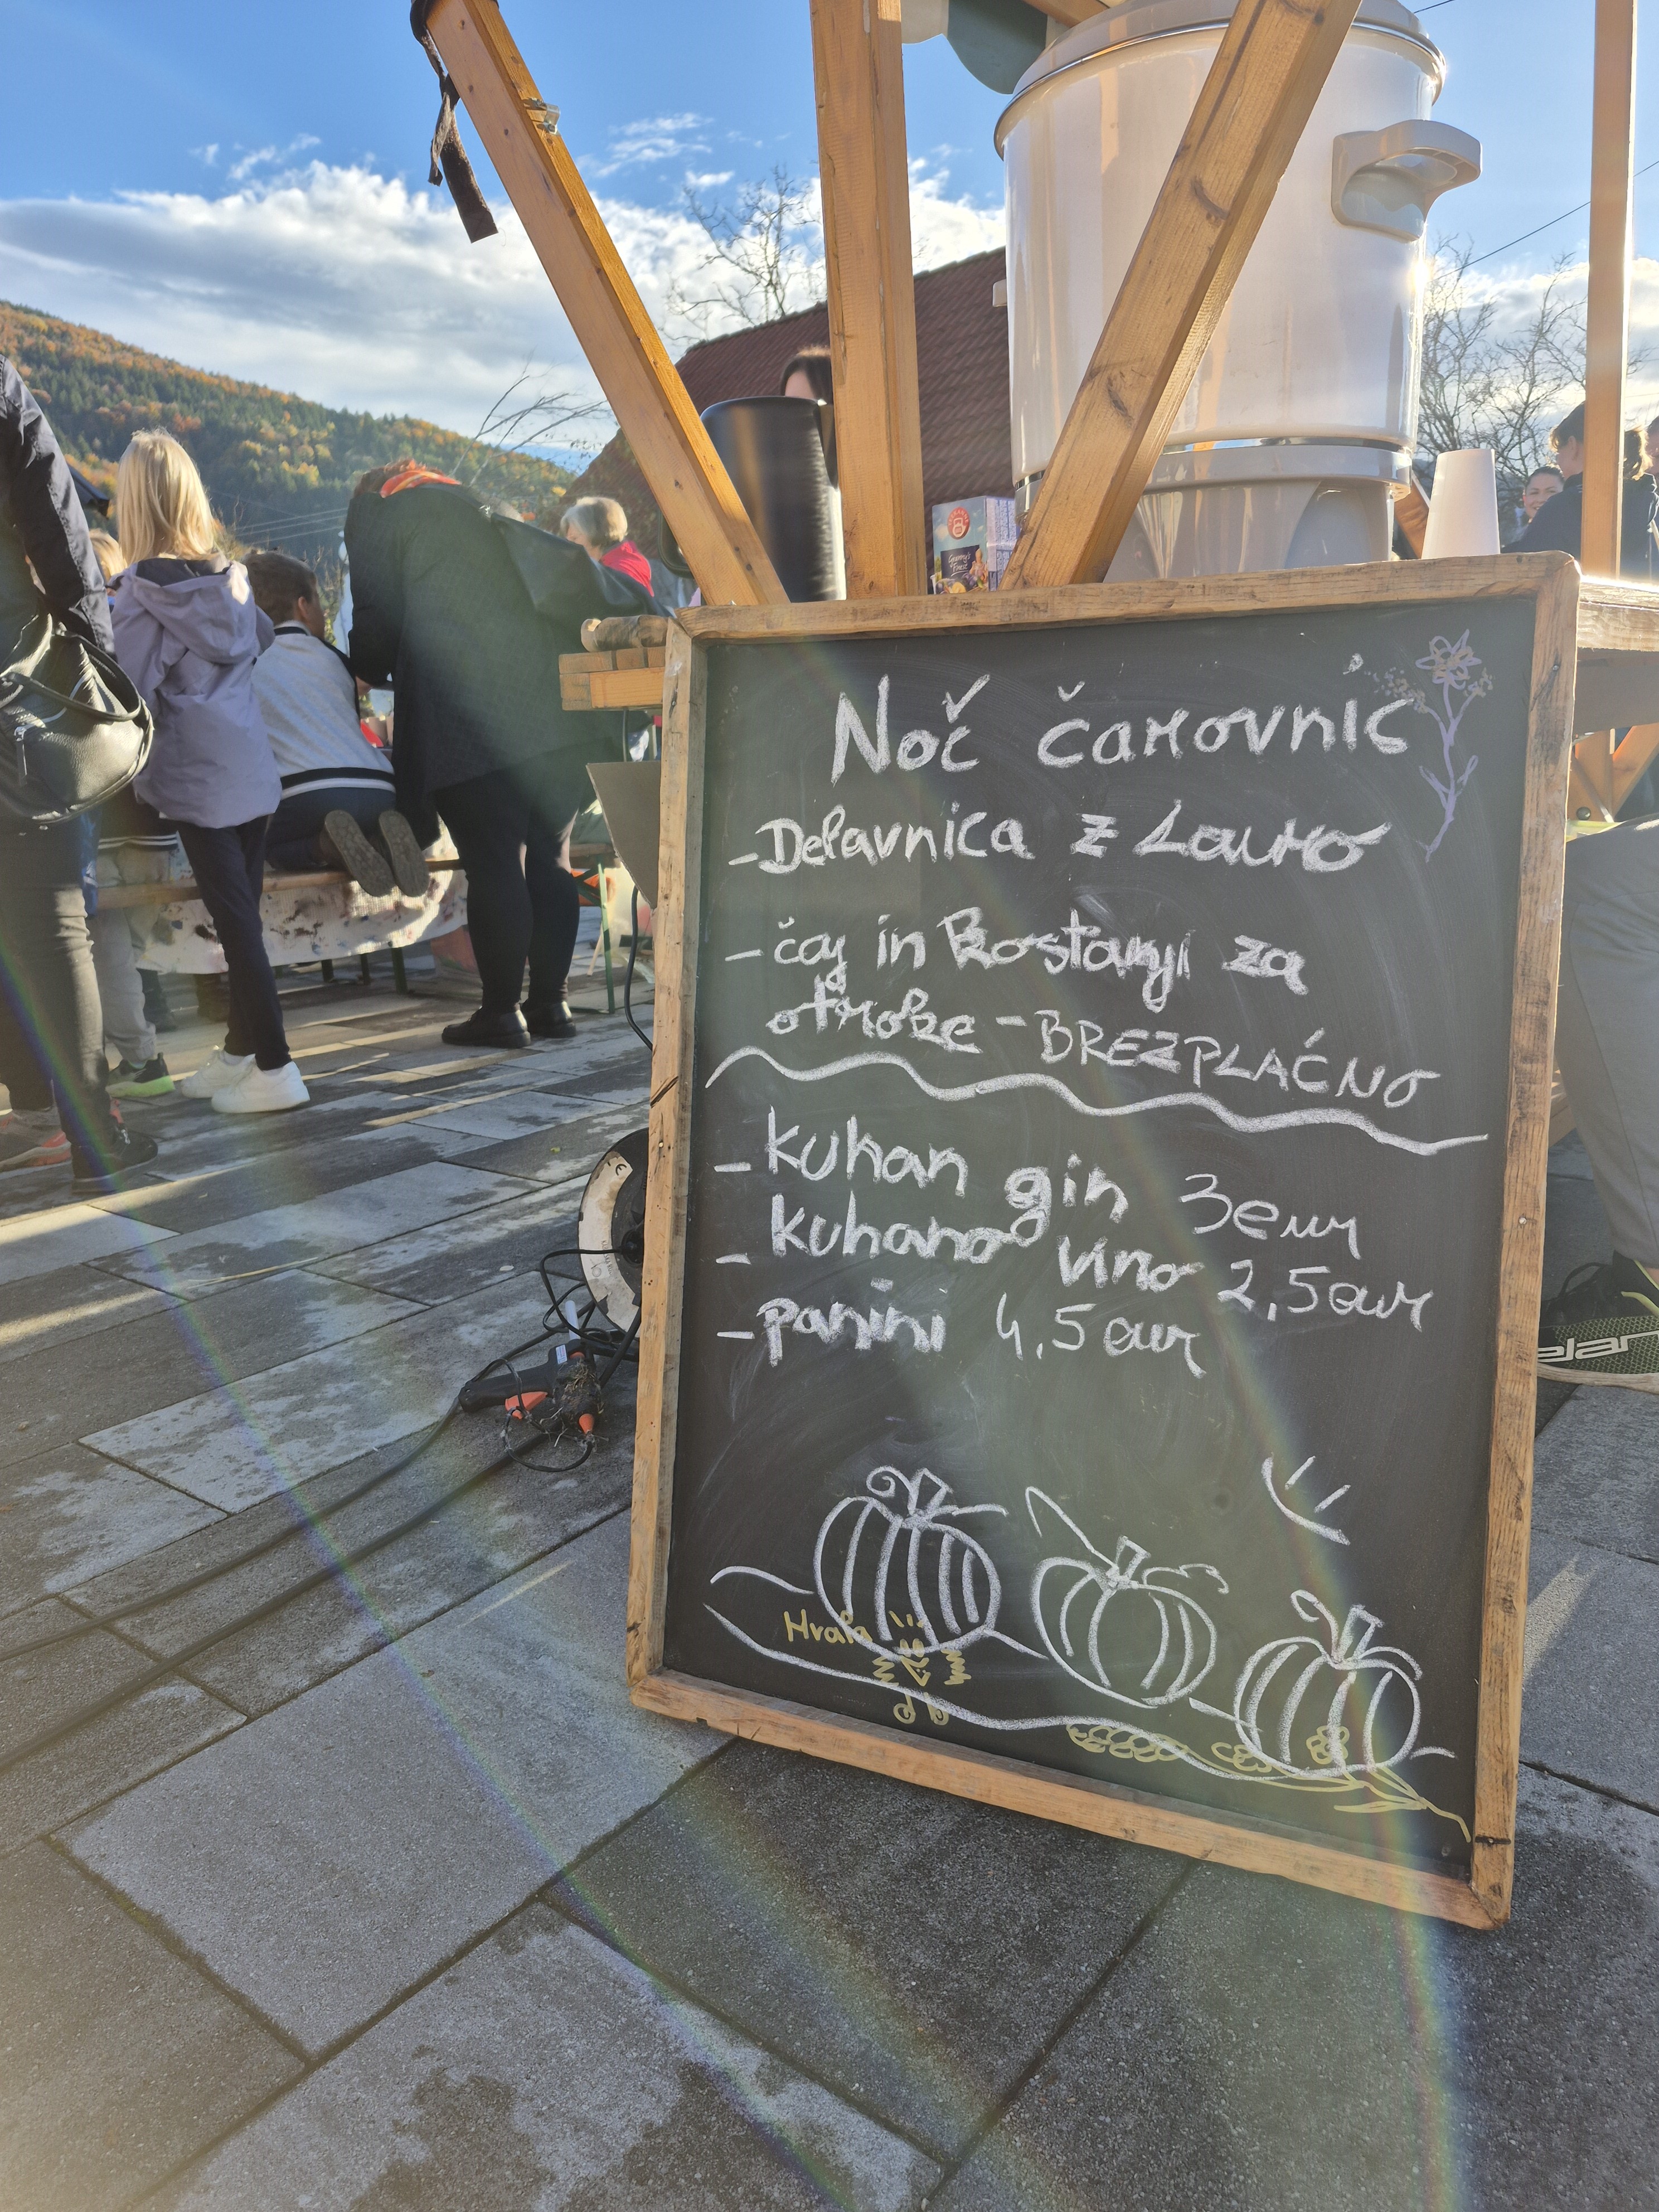 Noč čarovnic
- Delavnica z Lauro
- čaj in kostanji za
otroke - BREZPLAČNO
- kuhan gin 3 eur
- kuhano vino 2,5 eur
- panini 4,5 eur
Hvala
elan